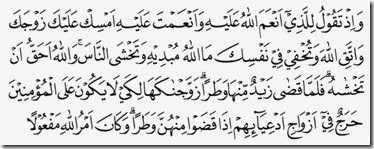 وَاِذْ تَقُوْلُ لِلَّذِيْٓ اَنْعَمَ اللّٰهُ عَلَيْهِ وَاَنْعَمْتَ عَلَيْهِ اَمْسِكْ عَلَيْكَ زَوْجَكَ
وَاتَّقِ اللّٰهَ وَتُخْفِيْ فِيْ نَفْسِكَ مَا اللّٰهُ مُبْدِيْهِ وَتَخْشَى النَّاسَۚ وَاللّٰهُ اَحَقُّ اَنْ
تَخْشٰىهُ ۗ فَلَمَّا قَضٰى زَيْدٌ مِّنْهَا وَطَرًاۗ زَوَّجْنٰكَهَا لِكَيْ لَا يَكُوْنَ عَلَى الْمُؤْمِنِيْنَ
حَرَجٌ فِيْٓ اَزْوَاجِ اَدْعِيَاۤىِٕهِمْ اِذَا قَضَوْا مِنْهُنَّ وَطَرًاۗ وَكَانَ اَمْرُ اللّٰهِ مَفْعُوْلًا